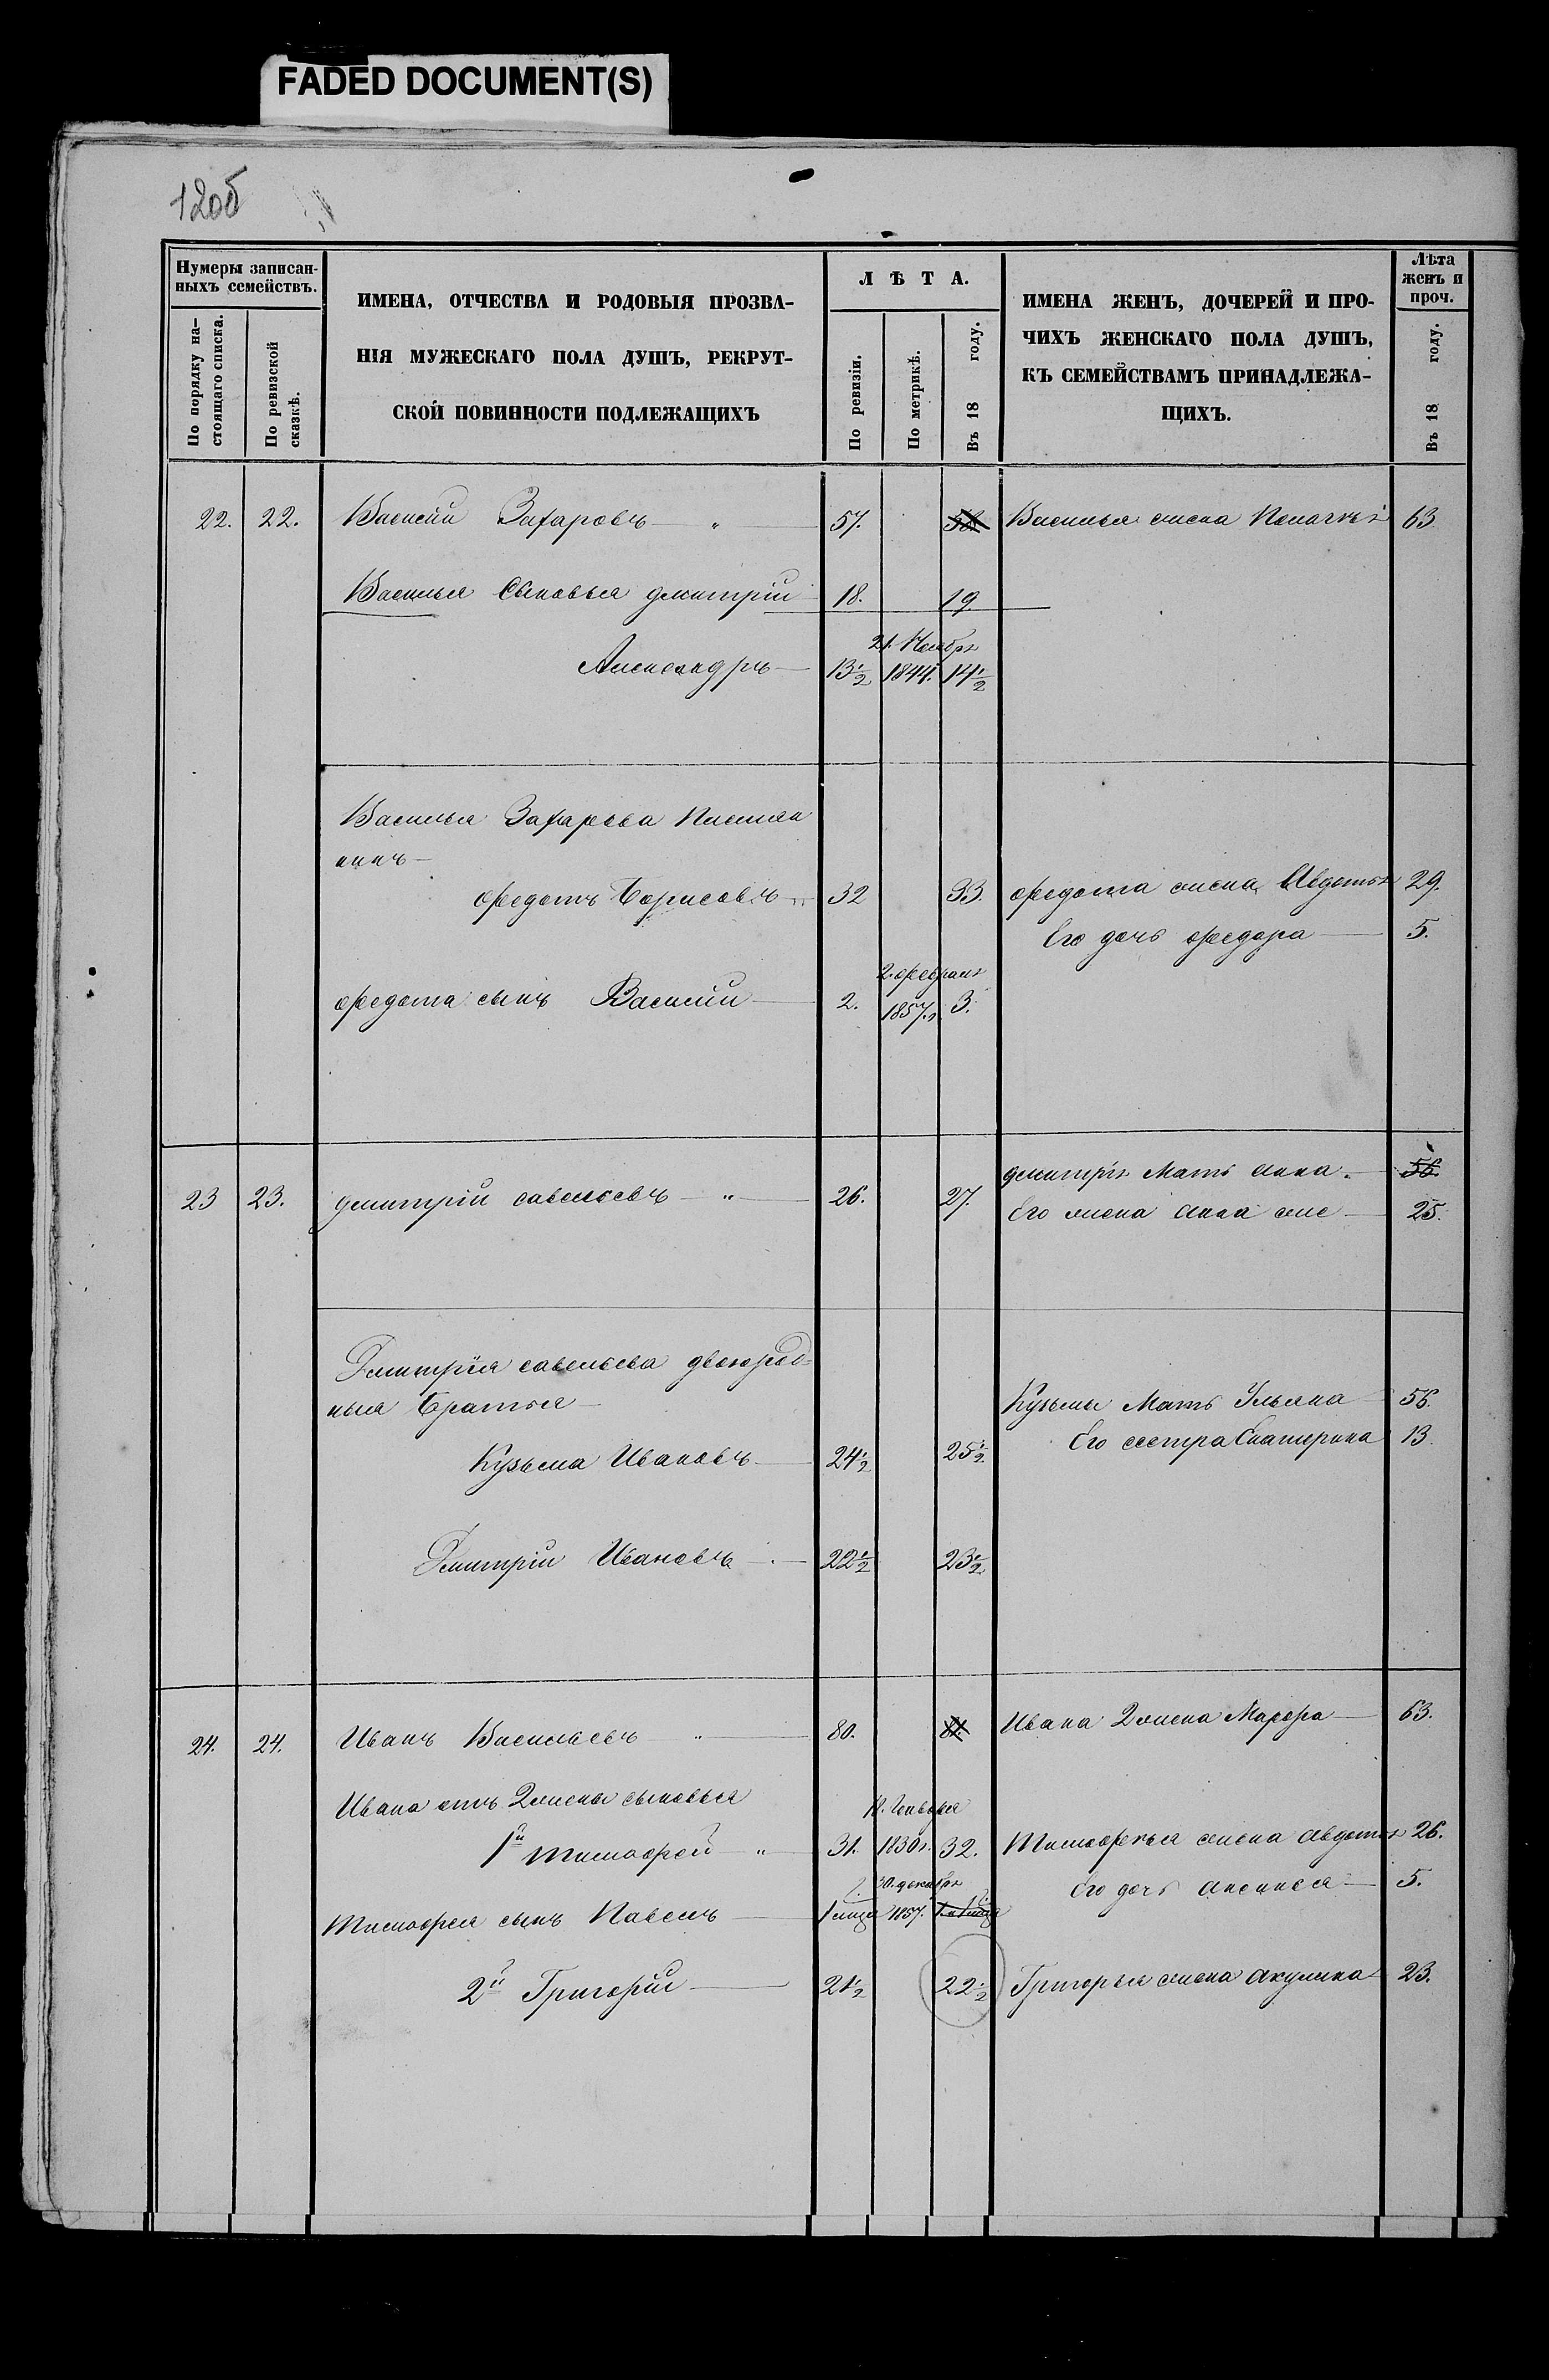 FADED DOCUMENT(S)
120б
Нумеры записан-
ныхъ семействъ.
По порядку на-
стоящаго списка.
По ревизской
сказкѣ.
ИМЕНА, ОТЧЕСТВА И РОДОВЫЯ ПРОЗВА-
НІЯ МУЖЕСКАГО ПОЛА ДУШЪ, РЕКРУТ-
СКОЙ ПОВИННОСТИ ПОДЛЕЖАЩИХЪ
ЛѢТА.
По ревизіи.
По метрикѣ.
Въ 18 году.
ИМЕНА ЖЕНЪ, ДОЧЕРЕЙ И ПРО-
ЧИХЪ ЖЕНСКАГО ПОЛА ДУШЪ,
КЪ СЕМЕЙСТВАМЪ ПРИНАДЛЕЖА-
ЩИХЪ.
Лѣта
женъ и
проч.
Въ 18 году.
22. 22. Василий Захаровъ " 57. 58 Василья жена 63
Василья Сыновья дмитрій 18. 19
21. Ноября
Александръ 13½ 1844. 14½
Василья Захарова Племян
никъ
федотъ Борисовъ " 32 33. федота жена Авдотья 29.
Его дочь федора 5.
2. февраля
федота сынъ Василий 2. 1857. 3.
дмитрія Мать анна. 56.
23 23. дмитрій савельевъ " 26. 27. Его жена анна же 25.
Дмитрія савельева двоюрод=
ныя Братья
Кузьмы Мать Ульяна 56.
Его сестра Екатерина 13
Кузьма Ивановъ 24½ 25½
Дмитрій Ивановъ 22½ 23½
24. 24. Иванъ Васильевъ " 80. 81. Ивана 2 жена Марфа 63.
Ивана отъ 2 жены сыновья
Генваря
1й тимофей " 31. 1830. 32. Тимофея жена авдотья 26.
30. декабря
Его дочь аксинья 5.
Тимофея сынъ Павелъ 1857.
2й Григорій 21½ 22½ Григорья жена акулина 23.